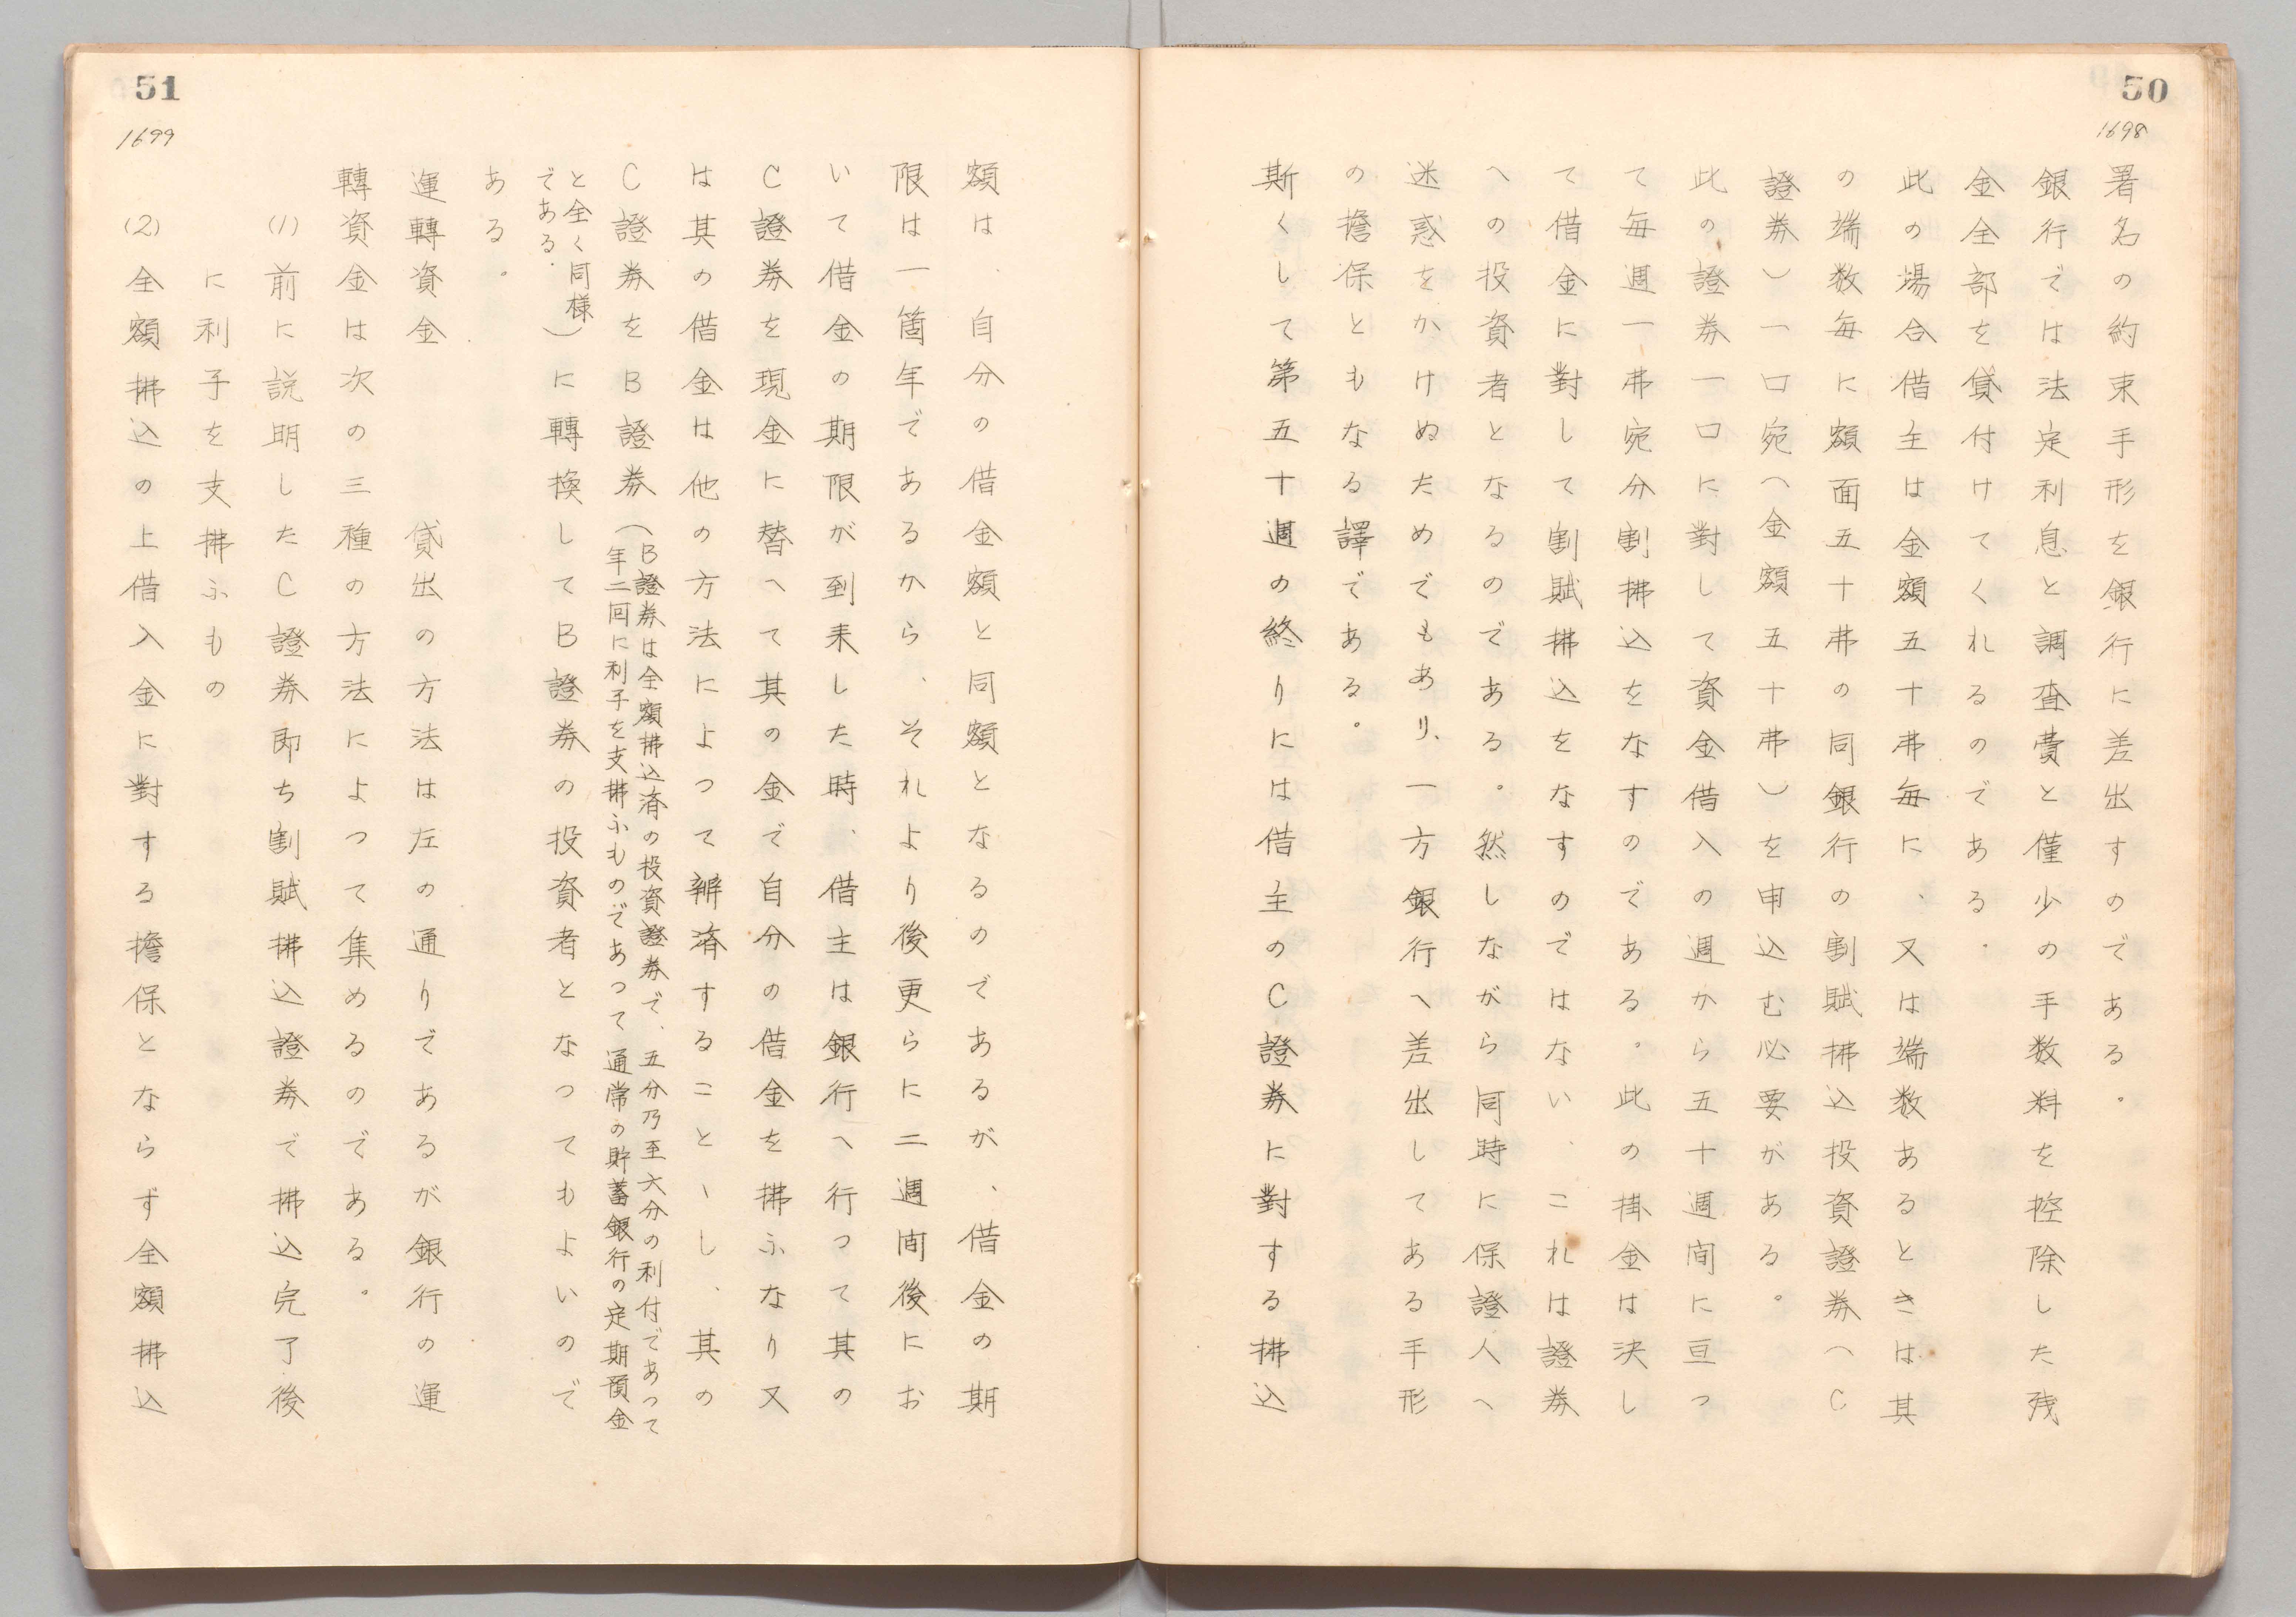 50
1698
署名の約束手形を銀行に差出すのである。
銀行では法定利息と調査費と僅少の手数料を控除した残
金全部を貸付けてくれるのである.
此の場合借主は金額五十弗毎に、又は端数あるときは其
の端数毎に額面五十弗の同銀行の割賦拂込投資證券（C
證券）一口宛（金額五十弗）を申込む必要がある。
此の證券一口に對して資金借入の週から五十週间に亘つ
て毎週一弗宛分割拂込をなすのである。此の掛金は決し
て借金に對して割賦拂込をなすのではない、これは證券
への投資者となるのである。然しながら同時に保證人へ
迷惑をかけぬためでもあり、一方銀行へ差出してある手形
の擔保ともなる譯である。
斯くして第五十週の終りには借主のC證券に對する拂込
51
1699
額は、自分の借金額と同額となるのであるが、借金の期
限は一箇年であるから、それより後更らに二週间後にお
いて借金の期限が到来した時、借主は銀行へ行つて其の
C證券を現金に替へて其の金で自分の借金を拂ふなり又
は其の借金は他の方法によつて辨済することゝし、其の
C證券をB證券（B證券は全額拂込済の投資證券で、五分乃至六分の利付であつて
年二回に利子を支拂ふものであつて通常の貯蓄銀行の定期預金
と全く同様
である.）に轉換してB證券の投資者となつてもよいので
ある。
運轉資金　　貸出の方法は左の通りであるが銀行の運
轉資金は次の三種の方法によつて集めるのである。
(1)前に説明したC證券即ち割賦拂込證券で拂込完了後
に利子を支拂ふもの
(2)全額拂込の上借入金に對する擔保とならず全額拂込